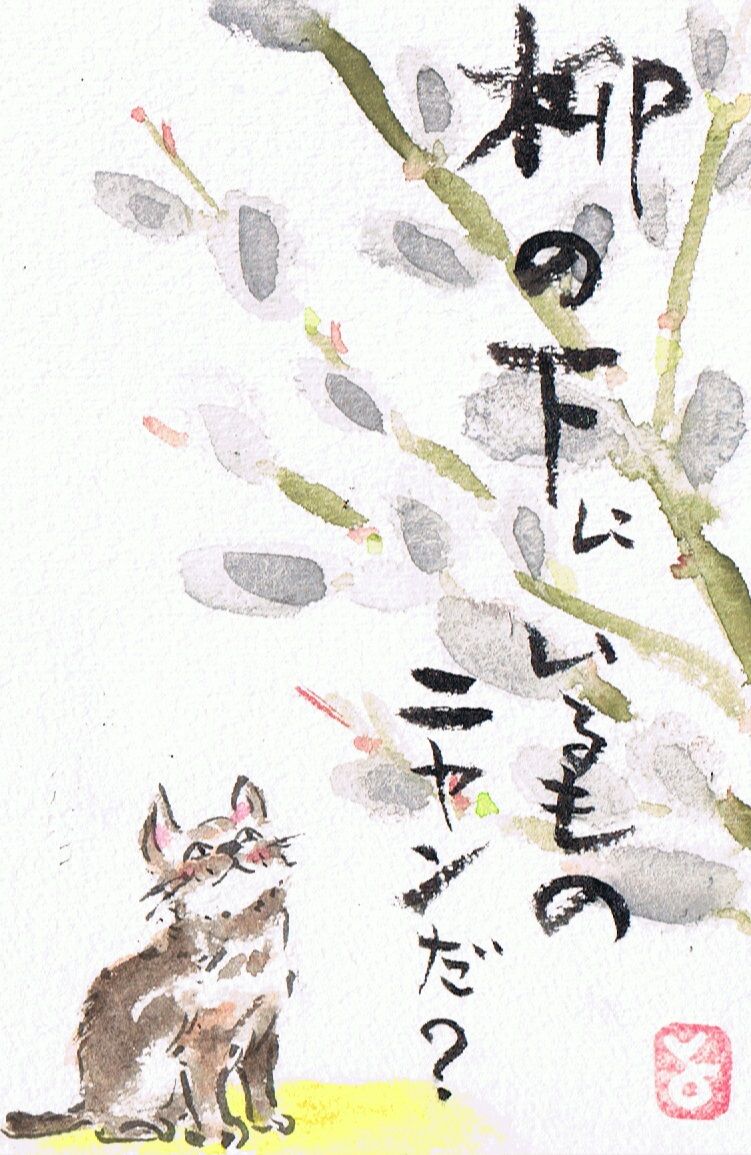 柳の下にいるもの
ニャンだ?
よ